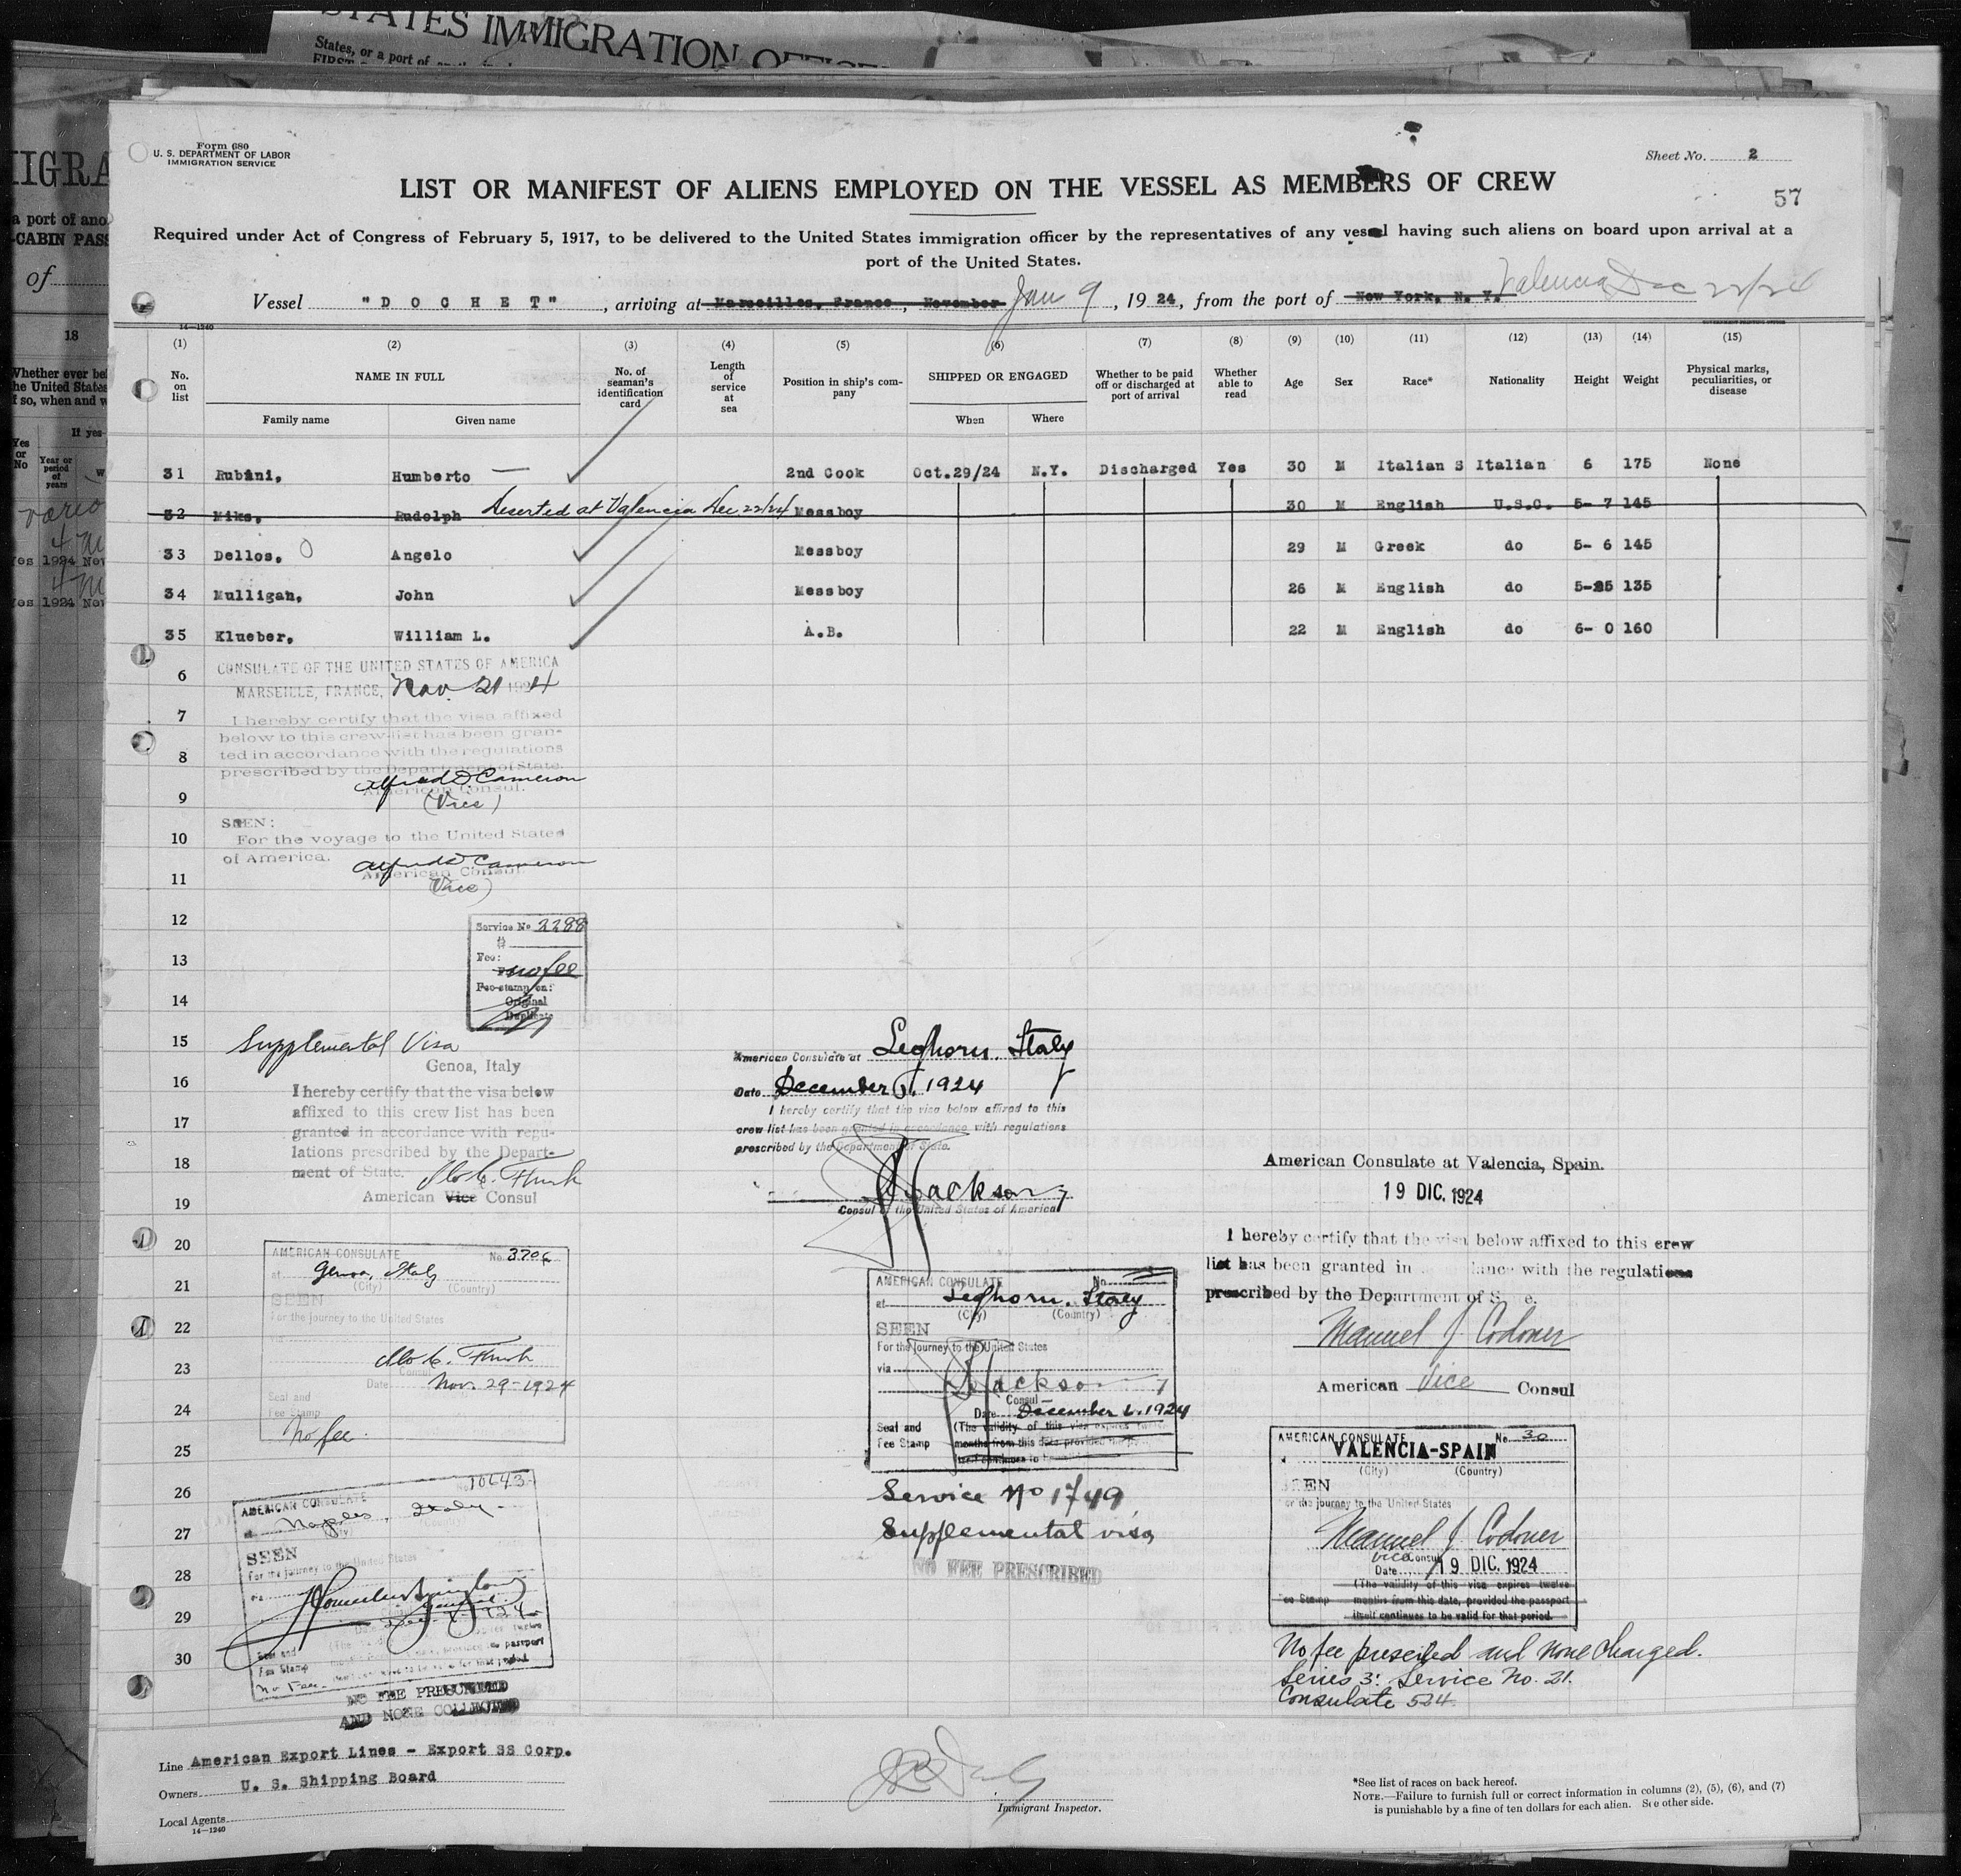 STATES IMMIGRATION
States, or a port of
Form 680
U. S. DEPARTMENT OF LABOR
IMMIGRATION SERVICE
Sheet No. 2
57
LIST OR MANIFEST OF ALIENS EMPLOYED ON THE VESSEL AS MEMBERS OF CREW
Required under Act of Congress of February 5, 1917, to be delivered to the United States immigration officer by the representatives of any vessel having such aliens on board upon arrival at a
port of the United States.
Vessel "DOCHET", arriving at Marseilles, France, November Jan 9, 1924, from the port of New York, N. Y. Valencia Dec 22/24
14-1240
(1) (2) (3) (4) (5) (6) (7) (8) (9) (10) (11) (12) (13) (14) (15)
No. on list NAME IN FULL No. of seaman's identification card Length of service at sea Position in ship's company SHIPPED OR ENGAGED Whether to be paid off or discharged at port of arrival Whether able to read Age Sex Race* Nationality Height Weight Physical marks, peculiarities, or disease
Family name Given name When Where
31 Rubini, Humberto — 2nd Cook Oct.29/24 N.Y. Discharged Yes 30 M Italian S Italian 6 175 None
32 Miks, Rudolph Deserted at Valencia Dec 22/24 Messboy 30 M English U.S.C. 5- 7 145
33 Dellos, Angelo Messboy 29 M Greek do 5- 6 145
34 Mulligan, John Messboy 26 M English do 135
35 Klueber, William L. A.B. 22 M English do 6- 0 160
6
CONSULATE OF THE UNITED STATES OF AMERICA
MARSEILLE, FRANCE, Nov 21 1924
7
I hereby certify that the visa affixed
below to this crew list has been gran-
8
ted in accordance with the regulations
prescribed by the Department of State.
Alfred D Cameron
American Consul.
9
(Vice)
SEEN:
10
For the voyage to the United States
of America.
Alfred D Cameron
American Consul
11
(Vice)
12
Service No 2288
13
Fee: no fee
Fee-stamp on:
14
Original
Duplicate
15
Supplemental Visa
Genoa, Italy
16
I hereby certify that the visa below
affixed to this crew list has been
17
granted in accordance with regu-
lations prescribed by the Depart-
18
ment of State.
American Vice Consul
19
American Consulate at Leghorn. Italy
Date December 6, 1924
I hereby certify that the visa below affixed to this
crew list has been granted in accordance with regulations
prescribed by the Department of State.
Jackson
Consul of the United States of America
American Consulate at Valencia, Spain.
19 DIC. 1924
I hereby certify that the visa below affixed to this crew
list has been granted in with the regulations
prescribed by the Department of State.
Manuel J. Codoner
American Vice Consul
20
AMERICAN CONSULATE No. 3706
21
at Genoa, Italy
(City) (Country)
SEEN
For the journey to the United States
22
23
Consul
Date Nov. 29-1924
Seal and
Fee Stamp
24
No fee.
25
AMERICAN CONSULATE No.
at Leghorn. Italy
(City) (Country)
SEEN
For the journey to the United States
via
Jackson
Consul
Date December 6. 1924
Seal and
Fee Stamp
(The validity of this visa expires twelve
months from this date provided the
Service No 1749
Supplemental visa
NO FEE PRESCRIBED
AMERICAN CONSULATE No. 30
VALENCIA-SPAIN
(City) (Country)
SEEN
For the journey to the United States
Manuel J. Codoner
Vice Consul
Date 19 DIC. 1924
(The validity of this visa expires twelve
Fee Stamp months from this date, provided the passport
itself continues to be valid for that period.
No fee prescribed and none charged.
Series 3: Service No. 21.
Consulate 524.
26
AMERICAN CONSULATE No. 10643
27
at Naples, Italy
(City) (Country)
SEEN
28
For the journey to the United States
29
Seal and
30
Fee Stamp
No Fee.
NO FEE PRESCRIBED
AND NONE COLLECTED
Line American Export Lines - Export SS Corp.
Owners U. S. Shipping Board
Local Agents
14-1240
Immigrant Inspector.
*See list of races on back hereof.
NOTE.—Failure to furnish full or correct information in columns (2), (5), (6), and (7)
is punishable by a fine of ten dollars for each alien. See other side.